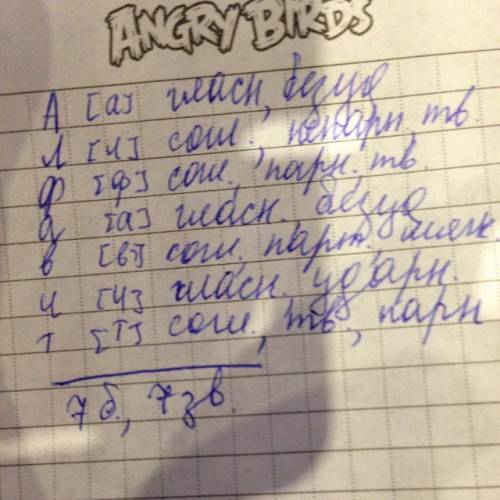 ANGRY BIRDS
А [а] гласн, безуд
Л [л] согл., непарн, тв.
ф [ф] согл., парн. тв.
а [а] гласн. безуд
в [в] согл. парн. мягк
и [и] гласн. ударн.
т [т] согл., тв., парн
7 б., 7 зв.